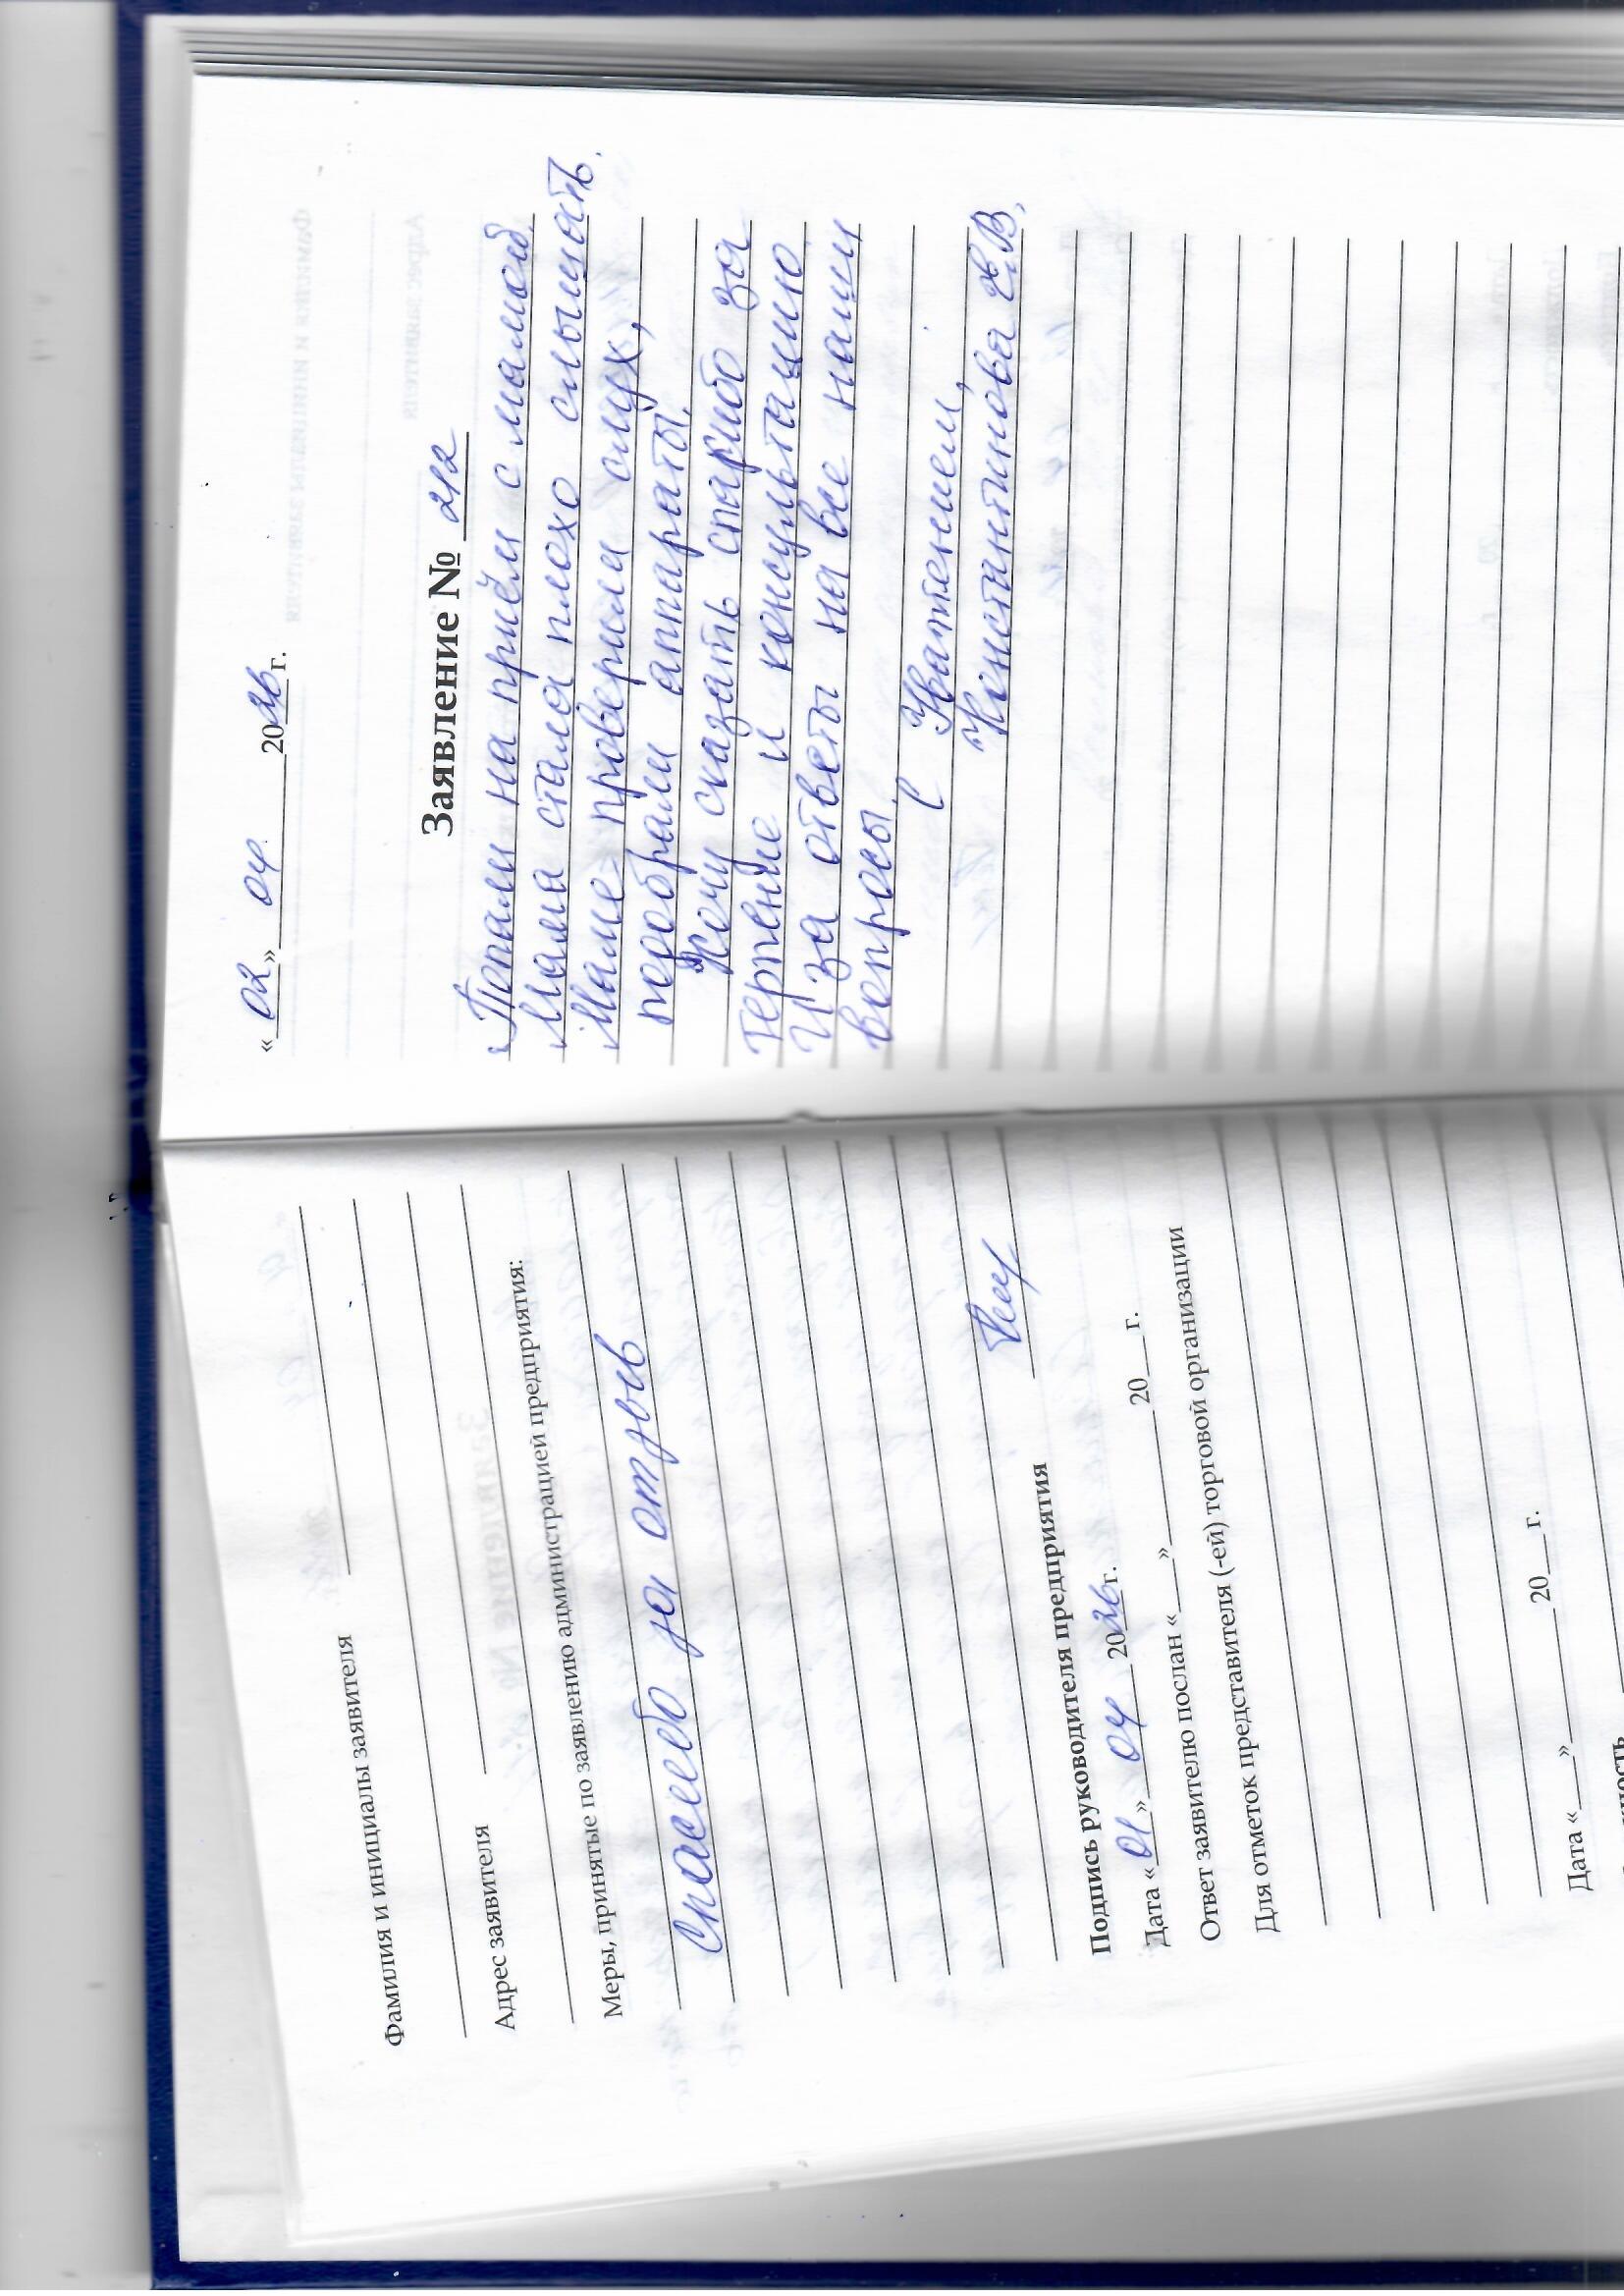 Фамилия и инициалы заявителя
Адрес заявителя
Меры, принятые по заявлению администрацией предприятия:
Спасибо за отзыв
Подпись руководителя предприятия
Дата «01» 04 2026 г.
Ответ заявителю послан «___» ________ 20__ г.
Для отметок представителя (-ей) торговой организации
Дата «___» ________ 20__ г.
«02» 04. 2026 г.
Заявление № 212
Попали на приём с мамой.
Мама стала плохо слышать.
Маме проверили слух,
подобрали аппараты.
Хочу сказать спасибо за
терпение и консультацию
И за ответы на все наши
вопросы.
С Уважением,
Константинова Ж.В.